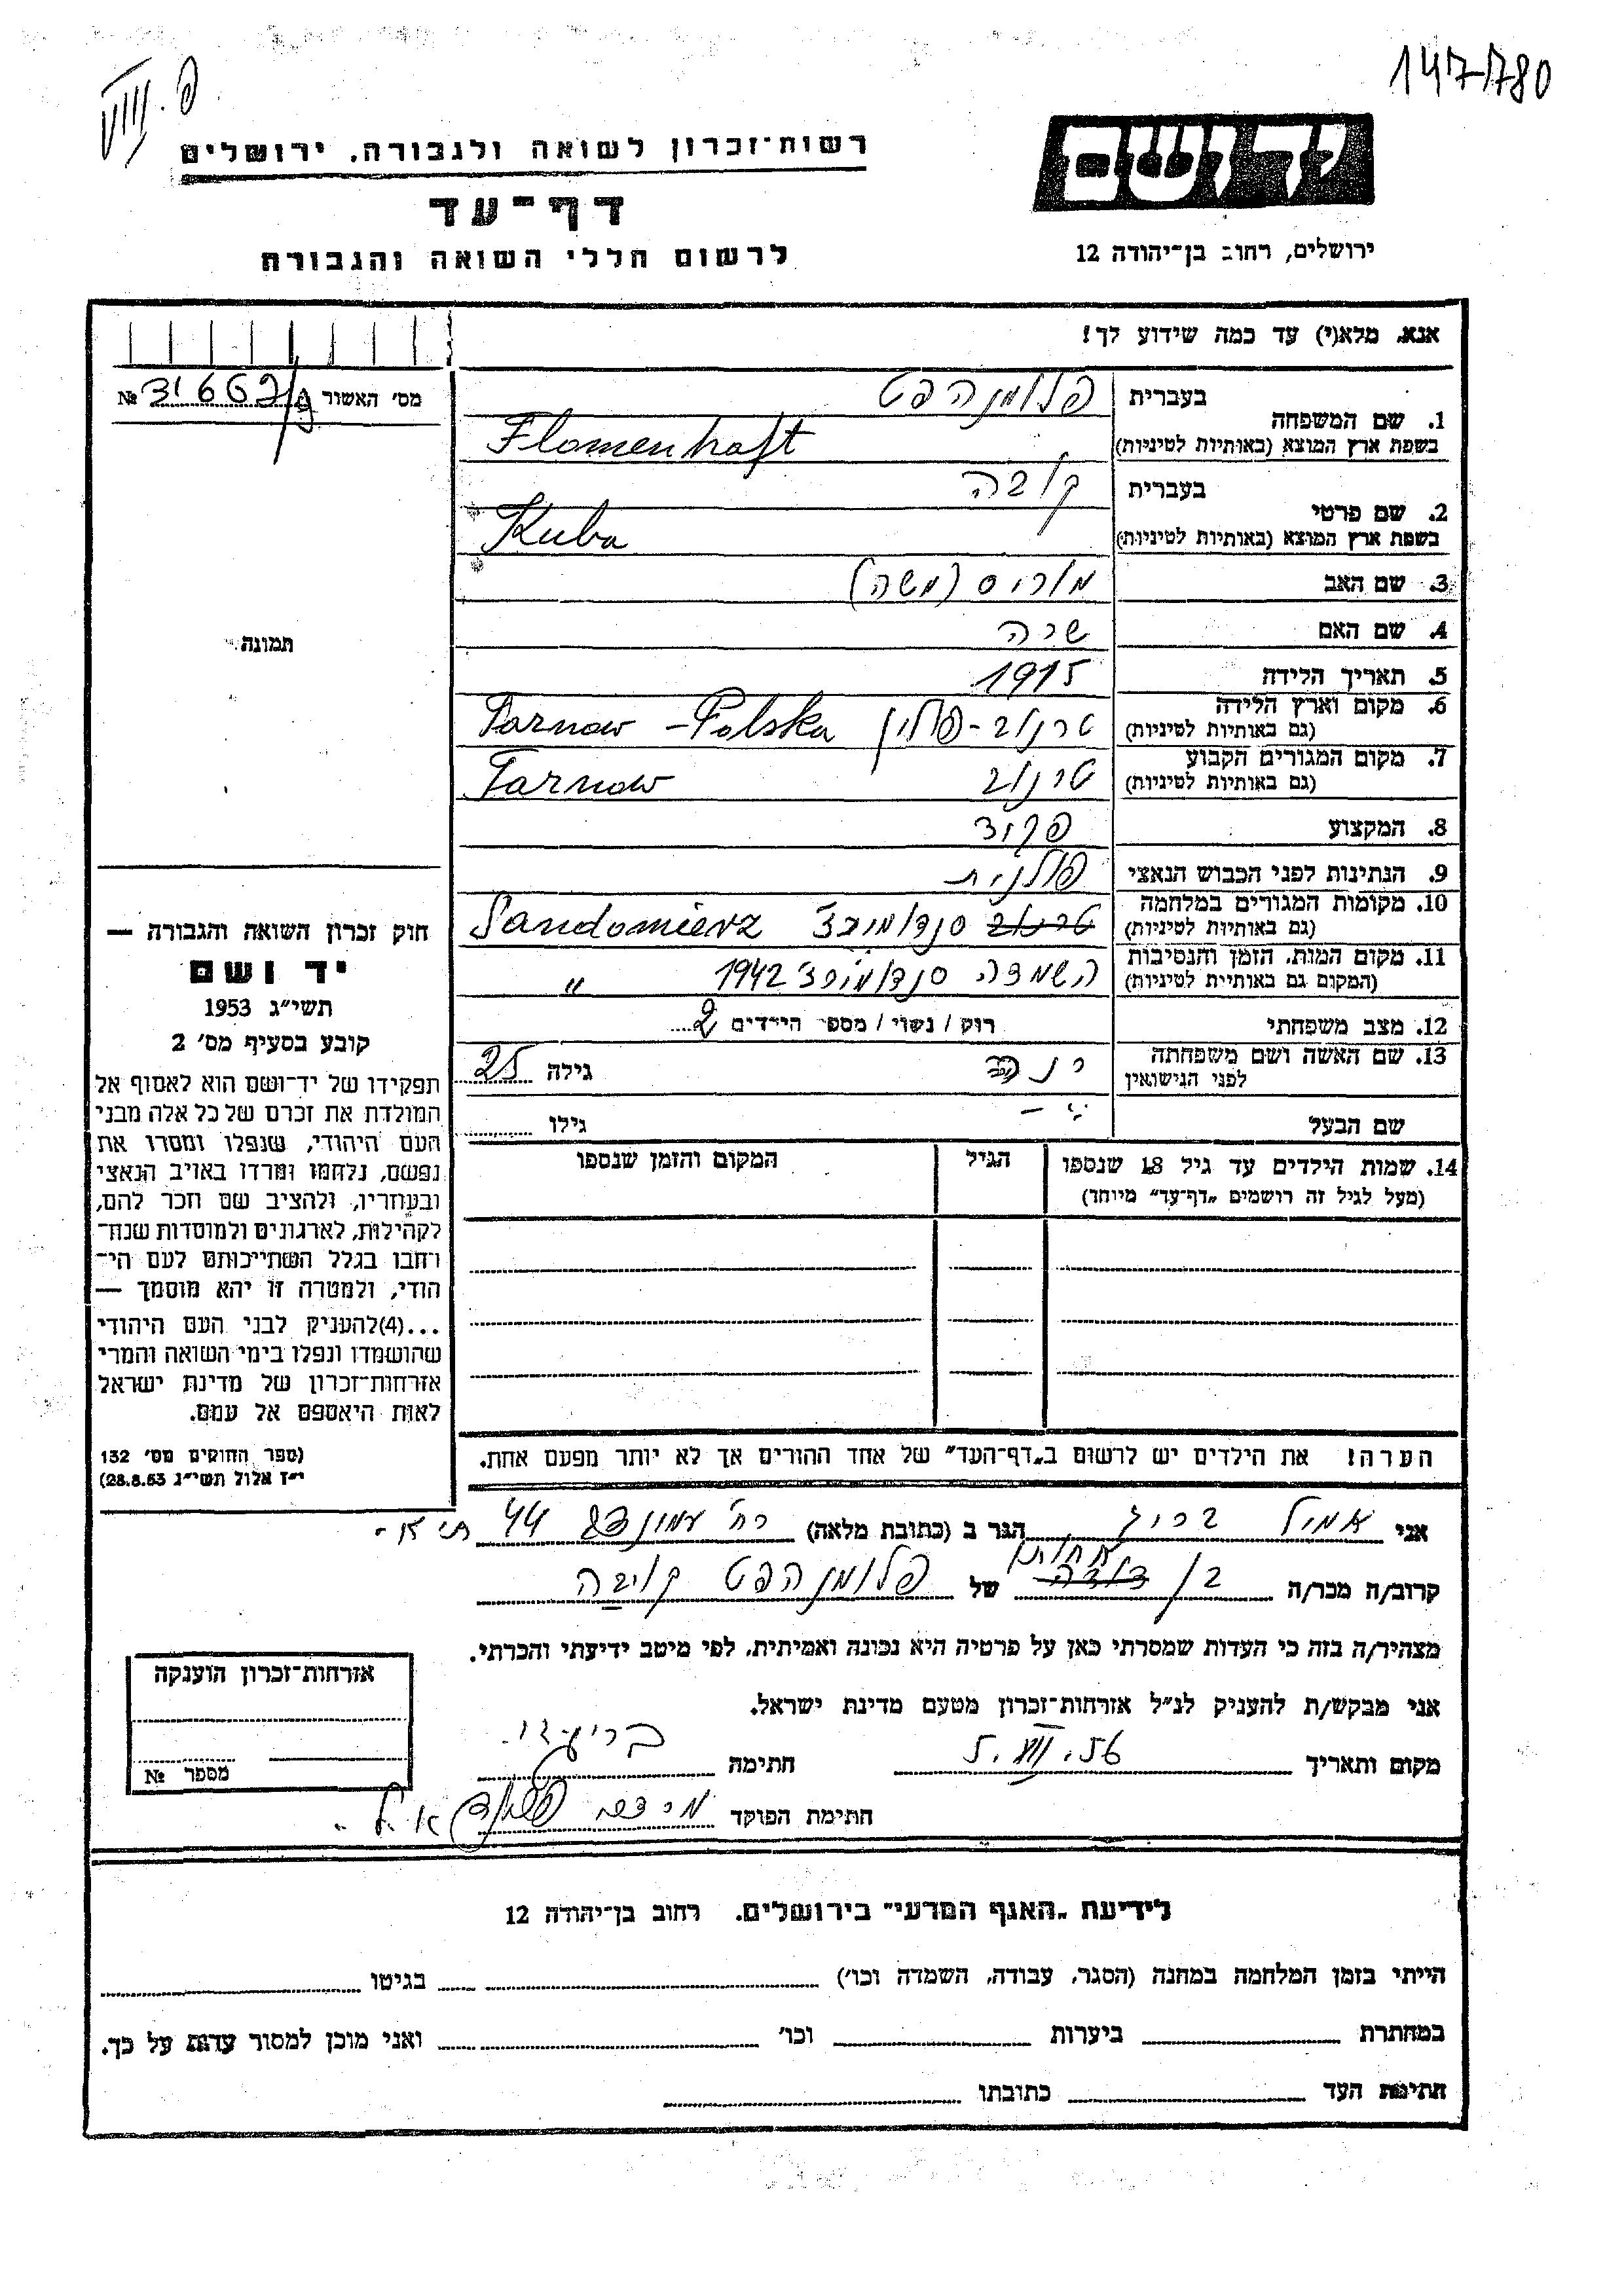 147/780
פ. VIII
יד ושם
רשות־זכרון לשואה ולגבורה, ירושלים
דף־עד
לרשום חללי השואה והגבורה
ירושלים, רחוב בן־יהודה 12
אנא, מלא(י) עד כמה שידוע לך!
מס׳ האשור
№
1. שם המשפחה בעברית פלומנהפט
בשפת ארץ המוצא (באותיות לטיניות) Flomenhaft
2. שם פרטי בעברית קובה
בשפת ארץ המוצא (באותיות לטיניות) Kuba
3. שם האב מוריס (משה)
4. שם האם שרה
5. תאריך הלידה 1915
6. מקום וארץ הלידה (גם באותיות לטיניות) טרנוב - פולין Tarnow - Polska
7. מקום המגורים הקבוע (גם באותיות לטיניות) טרנוב Tarnow
8. המקצוע פקיד
9. הנתינות לפני הכבוש הנאצי פולנית
10. מקומות המגורים במלחמה (גם באותיות לטיניות) טרנוב סנדומירז׳ Sandomierz
11. מקום המות, הזמן והנסיבות (המקום גם באותיות לטיניות) השמדה סנדומירז׳ 1942 "
12. מצב משפחתי רוק / נשוי / מספר הילדים 2
13. שם האשה ושם משפחתה לפני הנישואין גילה 25
שם הבעל גילו
14. שמות הילדים עד גיל 18 שנספו הגיל המקום והזמן שנספו
(מעל לגיל זה רושמים "דף־עד" מיוחד)
הערה! את הילדים יש לרשום ב"דף־העד" של אחד ההורים אך לא יותר מפעם אחת.
תמונה
חוק זכרון השואה והגבורה —
יד ושם
תשי״ג 1953
קובע בסעיף מס׳ 2
תפקידו של יד־ושם הוא לאסוף אל
המולדת את זכרם של כל אלה מבני
העם היהודי, שנפלו ומסרו את
נפשם, נלחמו ומרדו באויב הנאצי
ובעוזריו, ולהציב שם וזכר להם,
לקהילות, לארגונים ולמוסדות שנח־
רחבו בגלל השתייכותם לעם הי־
הודי, ולמטרה זו יהא מוסמך —
...(4)להעניק לבני העם היהודי
שהושמדו ונפלו בימי השואה והמרי
אזרחות־זכרון של מדינת ישראל
לאות היאספם אל עמם.
(ספר החוקים מס׳ 132
י״ז אלול תשי״ג 28.8.53)
אני אמיל הגר ב (כתובת מלאה) רח׳ 44 ת״א.
קרוב/ה מכר/ה בן דודה אחותו של פלומנהפט קובה
מצהיר/ה בזה כי העדות שמסרתי כאן על פרטיה היא נכונה ואמיתית, לפי מיטב ידיעתי והכרתי.
אני מבקש/ת להעניק לנ״ל אזרחות־זכרון מטעם מדינת ישראל.
מקום ותאריך 5. VIII. 56 חתימה
חתימת הפוקד
אזרחות־זכרון הוענקה
מספר №
לידיעת "האגף המדעי" בירושלים. רחוב בן־יהודה 12
הייתי בזמן המלחמה במחנה (הסגר, עבודה, השמדה וכו׳) בגיטו
במחתרת ביערות וכו׳ ואני מוכן למסור עדות על כך.
חתימת העד כתובתו